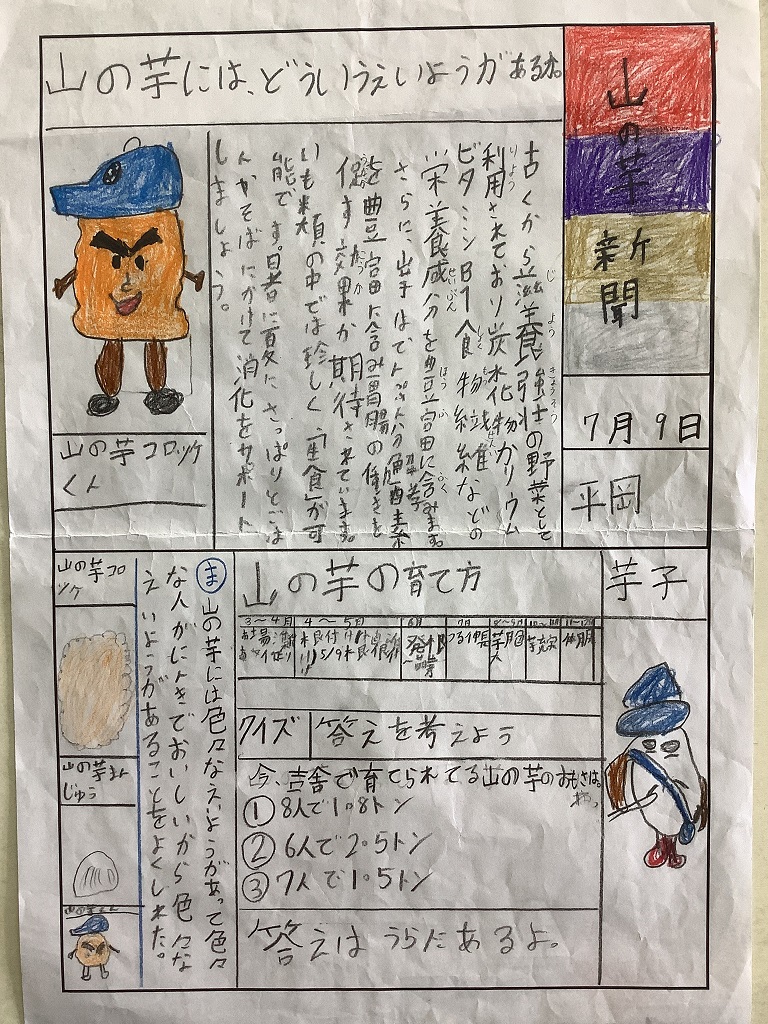 山の芋新聞
7月9日
平岡
山の芋には、どういうえいようがあるか。
古くから滋養強壮の野菜として
利用されており炭水化物カリウム
ビタミンB1食物繊維などの
栄養成分を豊富に含みます。
さらに、山芋はでんぷん分解酵素
を豊富に含み胃腸の働きを
促す効果が期待されています。
いも類の中では珍しく「生食」が可
能です。暑い夏に さっぱりとごは
んかそばにかけて消化をサポート
しましょう。
山の芋コロッケ
くん
芋子
山の芋の育て方
3〜4月
4〜5月
6月
7月
クイズ
答えを考えよう
今、吉舎で育てられてる山の芋のおもさは。
①8人で1.8トン
②6人で2.5トン
③7人で1.5トン
答えはうらにあるよ。
ま 山の芋には色々なえいようがあって色々
な人がにんきでおいしいから色々な
えいようがあることをよくしれた。
山の芋コロ
ッケ
山の芋まん
じゅう